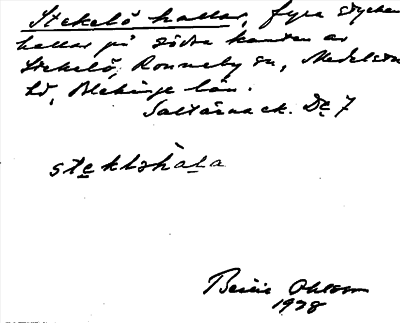 Stekelö hallar, fyra stycken
hallar på södra kanten av
Stekelö, Ronneby sn, Medelsta
hd, Blekinge län.
Saltärna ek. De 7
steklshala
Ohlsson
1928